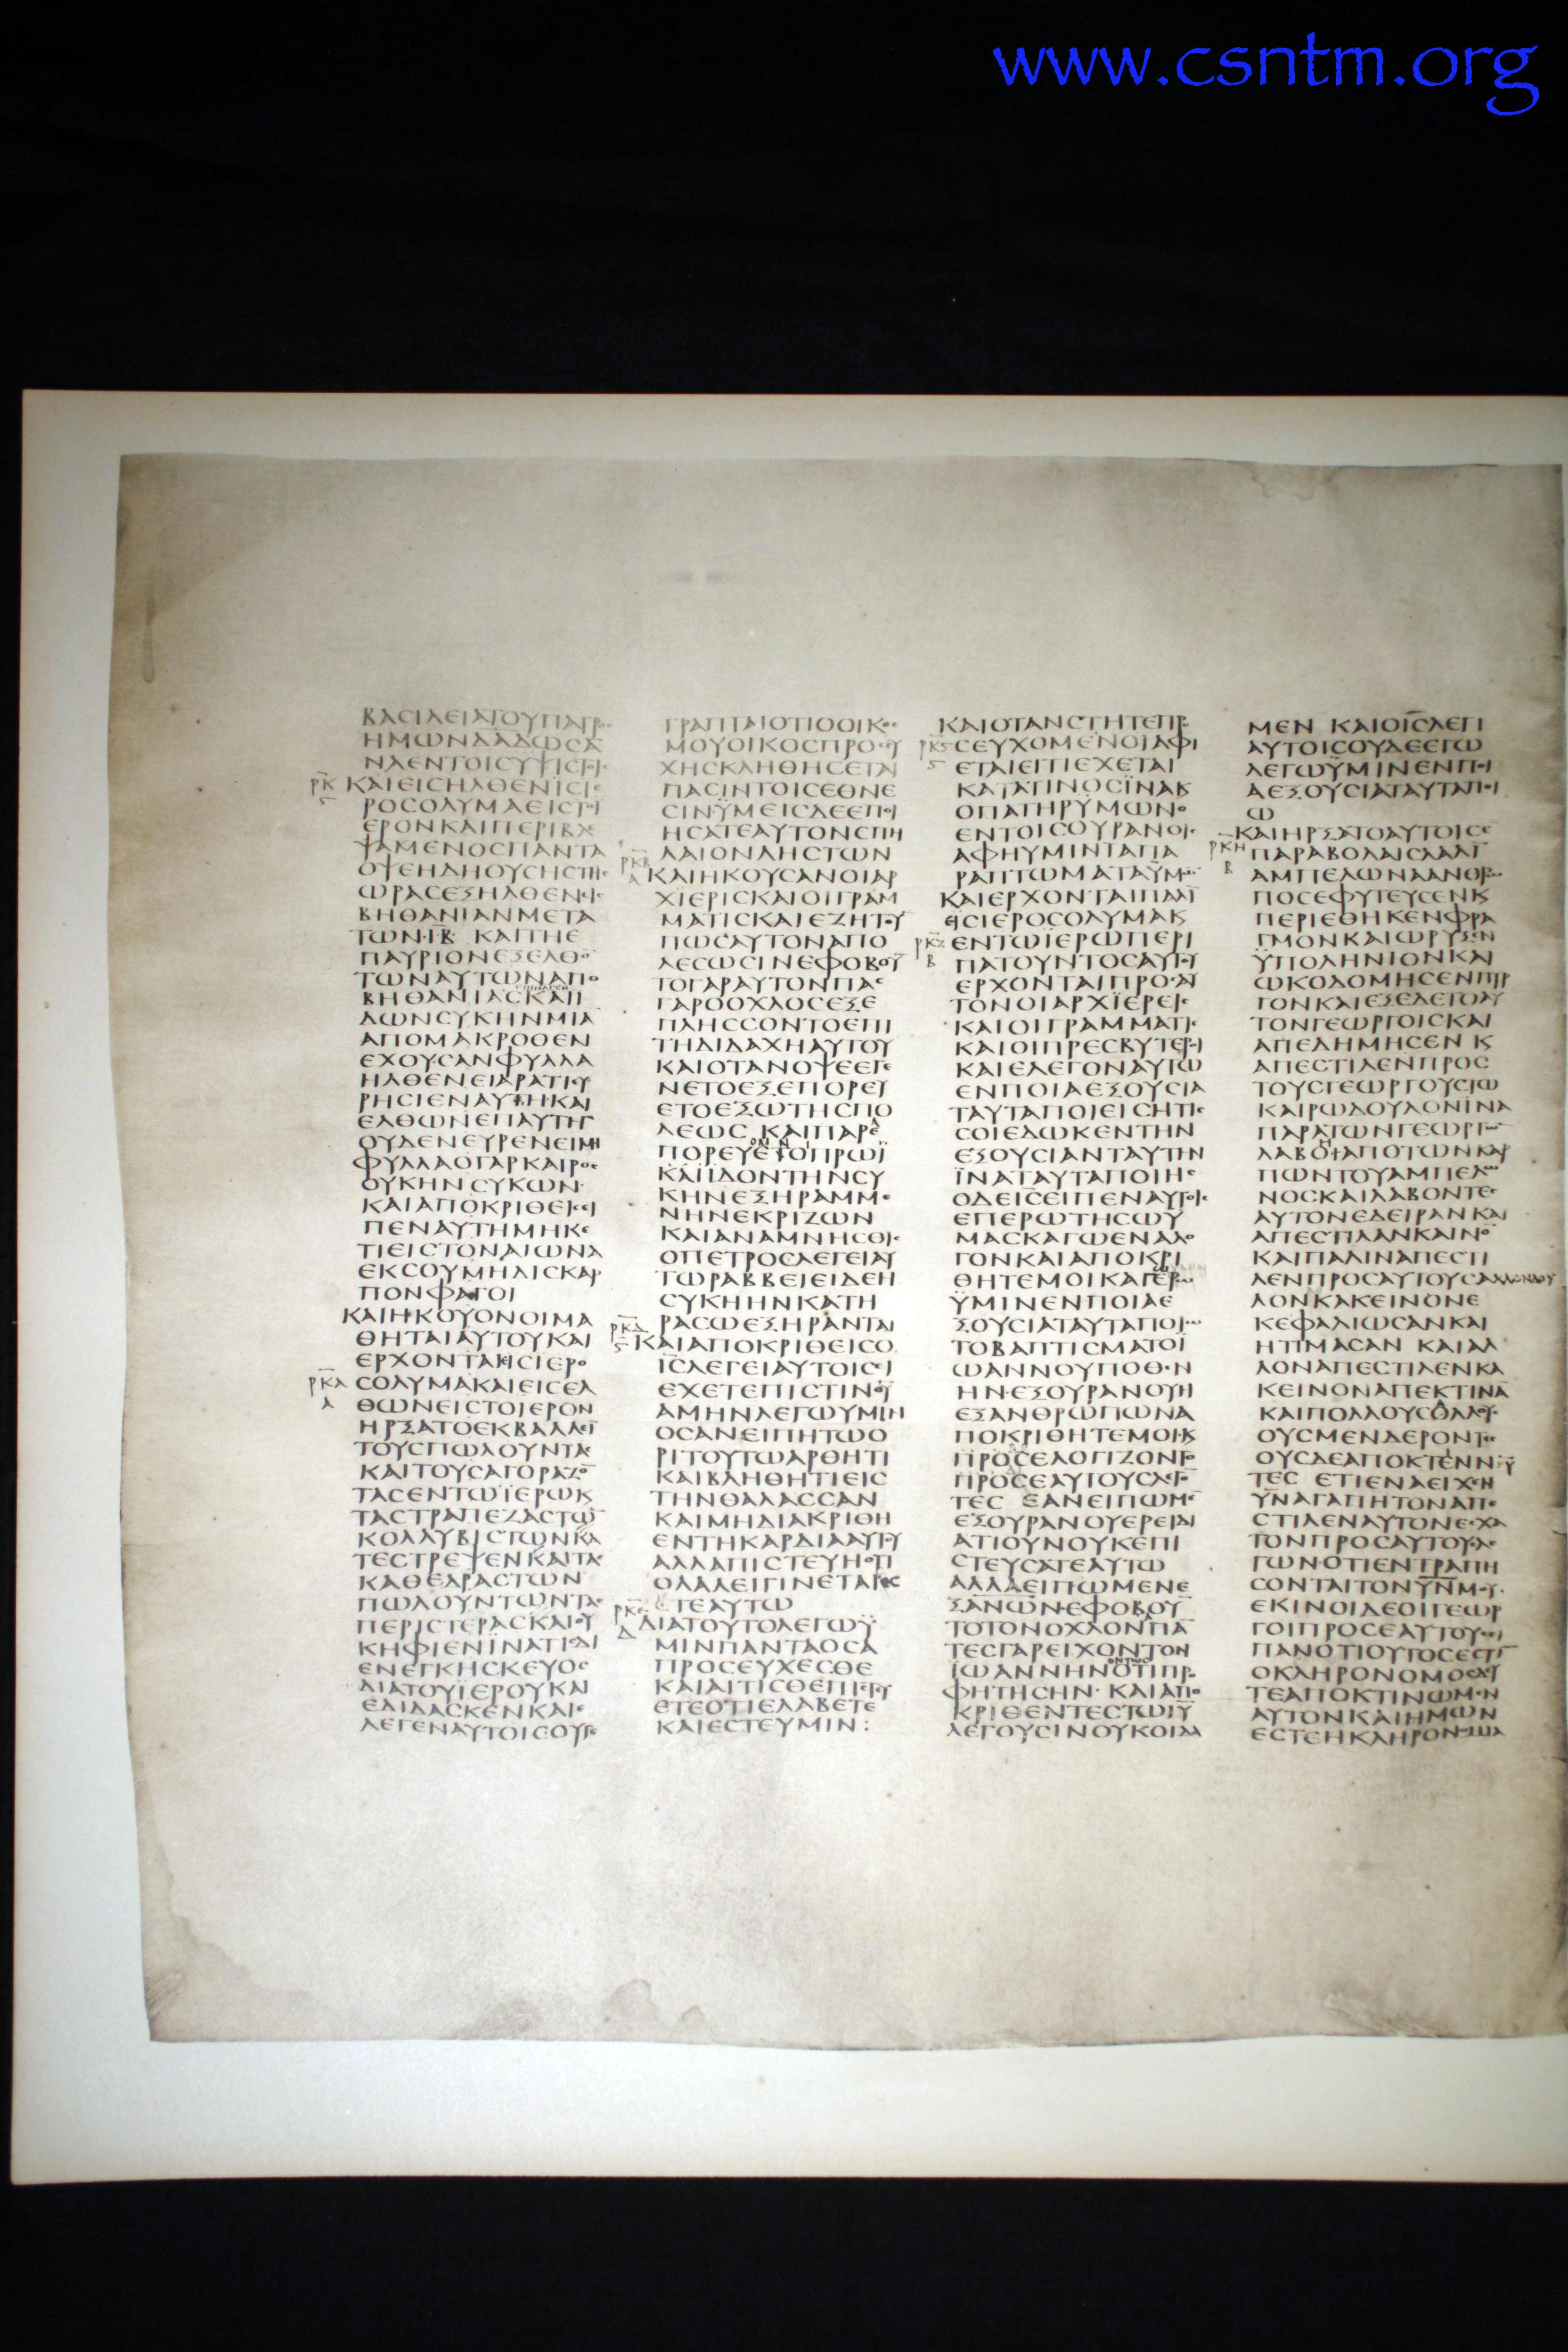 www.csntm.org
ΒΑCΙΛΕΙΑΤΟΥΠΑΤΡΟC
ΗΜΩΝΔΑΔΩCΑ
ΝΑΕΝΤΟΙCΥΨΙCΤΟΙ
ΚΑΙΕΙCΗΛΘΕΝΪCΙΕ
ΡΟCΟΛΥΜΑΕΙCΤΟΙ
ΕΡΟΝΚΑΙΠΕΡΙΒΛΕ
ΨΑΜΕΝΟCΠΑΝΤΑ
ΟΨΕΗΔΗΟΥCΗCΤΗC
ΩΡΑCΕΞΗΛΘΕΝΕΙC
ΒΗΘΑΝΙΑΝΜΕΤΑ
ΤΩΝ·ΙΒ· ΚΑΙΤΗΕ
ΠΑΥΡΙΟΝΕΞΕΛΘΟ̅
ΤΩΝΑΥΤΩΝΑΠΟ
ΒΗΘΑΝΙΑC
ΔΩΝCΥΚΗΝΜΙΑ̅
ΑΠΟΜΑΚΡΟΘΕΝ
ΕΧΟΥCΑΝΦΥΛΛΑ
ΗΛΘΕΝΕΙΑΡΑΤΙΕΥ
ΡΗCΙΕΝΑΥΤΗΚΑΙ
ΕΛΘΩΝΕΠΑΥΤΗ̅
ΟΥΔΕΝΕΥΡΕΝΕΙΜΗ
ΦΥΛΛΑΟΓΑΡΚΑΙΡΟC
ΟΥΚΗΝCΥΚΩΝ·
ΚΑΙΑΠΟΚΡΙΘΕΙCΕΙ
ΠΕΝΑΥΤΗΜΗΚΕ
ΤΙΕΙCΤΟΝΑΙΩΝΑ
ΕΚCΟΥΜΗΔΙCΚΑΡ
ΠΟΝΦΑΓΟΙ
ΚΑΙΗΚΟΥΟΝΟΙΜΑ
ΘΗΤΑΙΑΥΤΟΥΚΑΙ
ΕΡΧΟΝΤΑΙΕΙCΙΕΡΟ
CΟΛΥΜΑΚΑΙΕΙCΕΛ
ΘΩΝΕΙCΤΟΙΕΡΟΝ
ΗΡΞΑΤΟΕΚΒΑΛΛΕΙ̅
ΤΟΥCΠΩΛΟΥΝΤΑC
ΚΑΙΤΟΥCΑΓΟΡΑΖΟ̅
ΤΑCΕΝΤΩΪΕΡΩΚ
ΤΑCΤΡΑΠΕΖΑCΤΩ̅
ΚΟΛΛΥΒΙCΤΩΝΚΑ
ΤΕCΤΡΕΨΕΝΚΑΙΤΑC
ΚΑΘΕΔΡΑCΤΩΝ
ΠΩΛΟΥΝΤΩΝΤΑC
ΠΕΡΙCΤΕΡΑCΚΑΙΟΥ
ΚΗΦΙΕΝΪΝΑΤΙCΔΙ
ΕΝΕΓΚΗCΚΕΥΟC
ΔΙΑΤΟΥΪΕΡΟΥΚΑΙ
ΕΔΙΔΑCΚΕΝΚΑΙΕ
ΛΕΓΕΝΑΥΤΟΙCΟΥΓΕ
ΓΡΑΠΤΑΙΟΤΙΟΟΙΚΟC
ΜΟΥΟΙΚΟCΠΡΟCΕΥ
ΧΗCΚΛΗΘΗCΕΤΑΙ
ΠΑCΙΝΤΟΙCΕΘΝΕ
CΙΝΫΜΕΙCΔΕΕΠΟΙ
ΗCΑΤΕΑΥΤΟΝCΠΗ
ΛΑΙΟΝΛΗCΤΩΝ
ΚΑΙΗΚΟΥCΑΝΟΙΑΡ
ΧΙΕΡΙCΚΑΙΟΙΓΡΑΜ
ΜΑΤΙCΚΑΙΕΖΗΤΟΥ
ΠΩCΑΥΤΟΝΑΠΟ
ΛΕCΩCΙΝΕΦΟΒΟΥ̅
ΤΟΓΑΡΑΥΤΟΝΠΑC
ΓΑΡΟΟΧΛΟCΕΞΕ
ΠΛΗCCΟΝΤΟΕΠΙ
ΤΗΔΙΔΑΧΗΑΥΤΟΥ
ΚΑΙΟΤΑΝΟΨΕΕΓΕ
ΝΕΤΟΕΞΕΠΟΡΕΥ
ΕΤΟΕΞΩΤΗCΠΟ
ΛΕΩC ΚΑΙΠΑΡΕ
ΚΑΙΪΔΟΝΤΗΝCΥ
ΚΗΝΕΞΗΡΑΜΜΕ
ΝΗΝΕΚΡΙΖΩΝ
ΚΑΙΑΝΑΜΝΗCΘΙC
ΟΠΕΤΡΟCΛΕΓΕΙΑΥ
ΤΩΡΑΒΒΕΙΕΙΔΕΗ
CΥΚΗΗΝΚΑΤΗ
ΡΑCΩΕΞΗΡΑΝΤΑΙ
ΚΑΙΑΠΟΚΡΙΘΕΙCΟ
Ι̅C̅ΛΕΓΕΙΑΥΤΟΙCΕΙ
ΕΧΕΤΕΠΙCΤΙΝΘΥ
ΑΜΗΝΛΕΓΩΥΜΙΝ
ΟCΑΝΕΙΠΗΤΩΟ
ΡΙΤΟΥΤΩΑΡΘΗΤΙ
ΚΑΙΒΛΗΘΗΤΙΕΙC
ΤΗΝΘΑΛΑCCΑΝ
ΚΑΙΜΗΔΙΑΚΡΙΘΗ
ΕΝΤΗΚΑΡΔΙΑΑΥΤΟΥ
ΑΛΛΑΠΙCΤΕΥΗΟΤΙ
ΟΛΑΛΕΙΓΙΝΕΤΑΙ
ΔΙΑΤΟΥΤΟΛΕΓΩΫ
ΜΙΝΠΑΝΤΑΟCΑ
ΠΡΟCΕΥΧΕCΘΕ
ΚΑΙΑΙΤΙCΘΕΠΙCΤΕΥ
ΕΤΕΟΤΙΕΛΑΒΕΤΕ
ΚΑΙΕCΤΕΥΜΙΝ:
ΚΑΙΟΤΑΝCΤΗΤΕΠΡΟ
CΕΥΧΟΜΕΝΟΙΑΦΙ
ΕΤΑΙΕΙΤΙΕΧΕΤΑΙ
ΚΑΤΑΤΙΝΟCΪΝΑΚ
ΟΠΑΤΗΡΫΜΩΝΟ
ΕΝΤΟΙCΟΥΡΑΝΟΙC
ΑΦΗΥΜΙΝΤΑΠΑ
ΡΑΠΤΩΜΑΤΑΫΜΩ̅
ΚΑΙΕΡΧΟΝΤΑΙΠΑΛΙ̅
ΕΙCΙΕΡΟCΟΛΥΜΑΚ
ΕΝΤΩΪΕΡΩΠΕΡΙ
ΠΑΤΟΥΝΤΟCΑΥΤΟΥ
ΕΡΧΟΝΤΑΙΠΡΟCΑΥ
ΤΟΝΟΙΑΡΧΪΕΡΕΙC
ΚΑΙΟΙΓΡΑΜΜΑΤΙC
ΚΑΙΟΙΠΡΕCΒΥΤΕΡΟΙ
ΚΑΙΕΛΕΓΟΝΑΥΤΩ
ΕΝΠΟΙΑΕΞΟΥCΙΑ
ΤΑΥΤΑΠΟΙΕΙCΗΤΙC
CΟΙΕΔΩΚΕΝΤΗΝ
ΕΞΟΥCΙΑΝΤΑΥΤΗΝ
ΪΝΑΤΑΥΤΑΠΟΙΗC
ΟΔΕΙ̅C̅ΕΙΠΕΝΑΥΤΟΙC
ΕΠΕΡΩΤΗCΩΥ
ΜΑCΚΑΓΩΕΝΑΛΟ
ΓΟΝΚΑΙΑΠΟΚΡΙ
ΫΜΙΝΕΝΠΟΙΑΕ
ΞΟΥCΙΑΤΑΥΤΑΠΟΙΩ
ΤΟΒΑΠΤΙCΜΑΤΟΪ
ΩΑΝΝΟΥΠΟΘΕΝ
ΗΝΕΞΟΥΡΑΝΟΥΗ
ΕΞΑΝΘΡΩΠΩΝΑ
ΠΟΚΡΙΘΗΤΕΜΟΙΚ
ΠΡΟCΕΑΥΤΟΥCΛΕΓΟ̅
ΤΕC ΕΑΝΕΙΠΩΜΕ
ΕΞΟΥΡΑΝΟΥΕΡΕΙΔΙ
ΑΤΙΟΥΝΟΥΚΕΠΙ
CΤΕΥCΑΤΕΑΥΤΩ
ΑΛΛΑΕΙΠΩΜΕΝΕ
ΞΑ̅Ν̅Ω̅Ν̅ΕΦΟΒΟΥ̅
ΤΟΤΟΝΟΧΛΟΝΠΑ̅
ΤΕCΓΑΡΕΙΧΟΝΤΟΝ
ΪΩΑΝΝΗΝΟΤΙΠΡΟ
ΦΗΤΗCΗΝ· ΚΑΙΑΠΟ
ΚΡΙΘΕΝΤΕCΤΩΙΥ
ΛΕΓΟΥCΙΝΟΥΚΟΙΔΑ
ΜΕΝ ΚΑΙΟΙ̅C̅ΛΕΓΙ
ΑΥΤΟΙCΟΥΔΕΕΓΩ
ΛΕΓΩΫΜΙΝΕΝΠΟΙ
ΑΕΞΟΥCΙΑΤΑΥΤΑΠΟΙ
Ω
ΚΑΙΗΡΞΑΤΟΑΥΤΟΙCΕ̅
ΠΑΡΑΒΟΛΑΙCΛΑΛΙ̅
ΑΜΠΕΛΩΝΑΑΝΘΡΩ
ΠΟCΕΦΥΤΕΥCΕΝΚ
ΠΕΡΙΕΘΗΚΕΝΦΡΑ
ΓΜΟΝΚΑΙΩΡΥΞΕΝ
ΫΠΟΛΗΝΙΟΝΚΑΙ
ΩΚΟΔΟΜΗCΕΝΠΥΡ
ΓΟΝΚΑΙΕΞΕΔΕΤΟΑΥ
ΤΟΝΓΕΩΡΓΟΙCΚΑΙ
ΑΠΕΔΗΜΗCΕΝ Κ
ΑΠΕCΤΙΛΕΝΠΡΟC
ΤΟΥCΓΕΩΡΓΟΥCΤΩ
ΚΑΙΡΩΔΟΥΛΟΝΪΝΑ
ΠΑΡΑΤΩΝΓΕΩΡΓΩ̅
ΠΩΝΤΟΥΑΜΠΕΛΩ
ΝΟCΚΑΙΛΑΒΟΝΤΕC
ΑΥΤΟΝΕΔΕΙΡΑΝΚΑΙ
ΑΠΕCΤΙΛΑΝΚΑΙΝΟ̅
ΚΑΙΠΑΛΙΝΑΠΕCΤΙ
ΛΕΝΠΡΟCΑΥΤΟΥCΑΛΛΟΝΔΟΥ
ΛΟΝΚΑΚΕΙΝΟΝΕ
ΚΕΦΑΛΙΩCΑΝΚΑΙ
ΗΤΙΜΑCΑΝ ΚΑΙΑΛ
ΛΟΝΑΠΕCΤΙΛΕΝΚΑ
ΚΕΙΝΟΝΑΠΕΚΤΙΝΑ̅
ΚΑΙΠΟΛΛΟΥCΑΛΛΟΥC
ΟΥCΜΕΝΔΕΡΟΝΤΕC
ΟΥCΔΕΑΠΟΚΤΕΝΝΥ̅
ΤΕC ΕΤΙΕΝΑΕΙΧΕΝ
Υ̅Ν̅ΑΓΑΠΗΤΟΝΑΠΕ
CΤΙΛΕΝΑΥΤΟΝΕCΧΑ
ΤΟΝΠΡΟCΑΥΤΟΥCΛΕ
ΓΩΝΟΤΙΕΝΤΡΑΠΗ
CΟΝΤΑΙΤΟΝΥ̅Ν̅ΜΟΥ·
ΕΚΙΝΟΙΔΕΟΙΓΕΩΡ
ΓΟΙΠΡΟCΕΑΥΤΟΥCΕΙ
ΠΑΝΟΤΙΟΥΤΟCΕCΤΙ̅
ΟΚΛΗΡΟΝΟΜΟCΔΕΥ
ΤΕΑΠΟΚΤΙΝΩΜΕΝ
ΑΥΤΟΝΚΑΙΗΜΩΝ
ΕCΤΕΗΚΛΗΡΟΝΟΜΙΑ